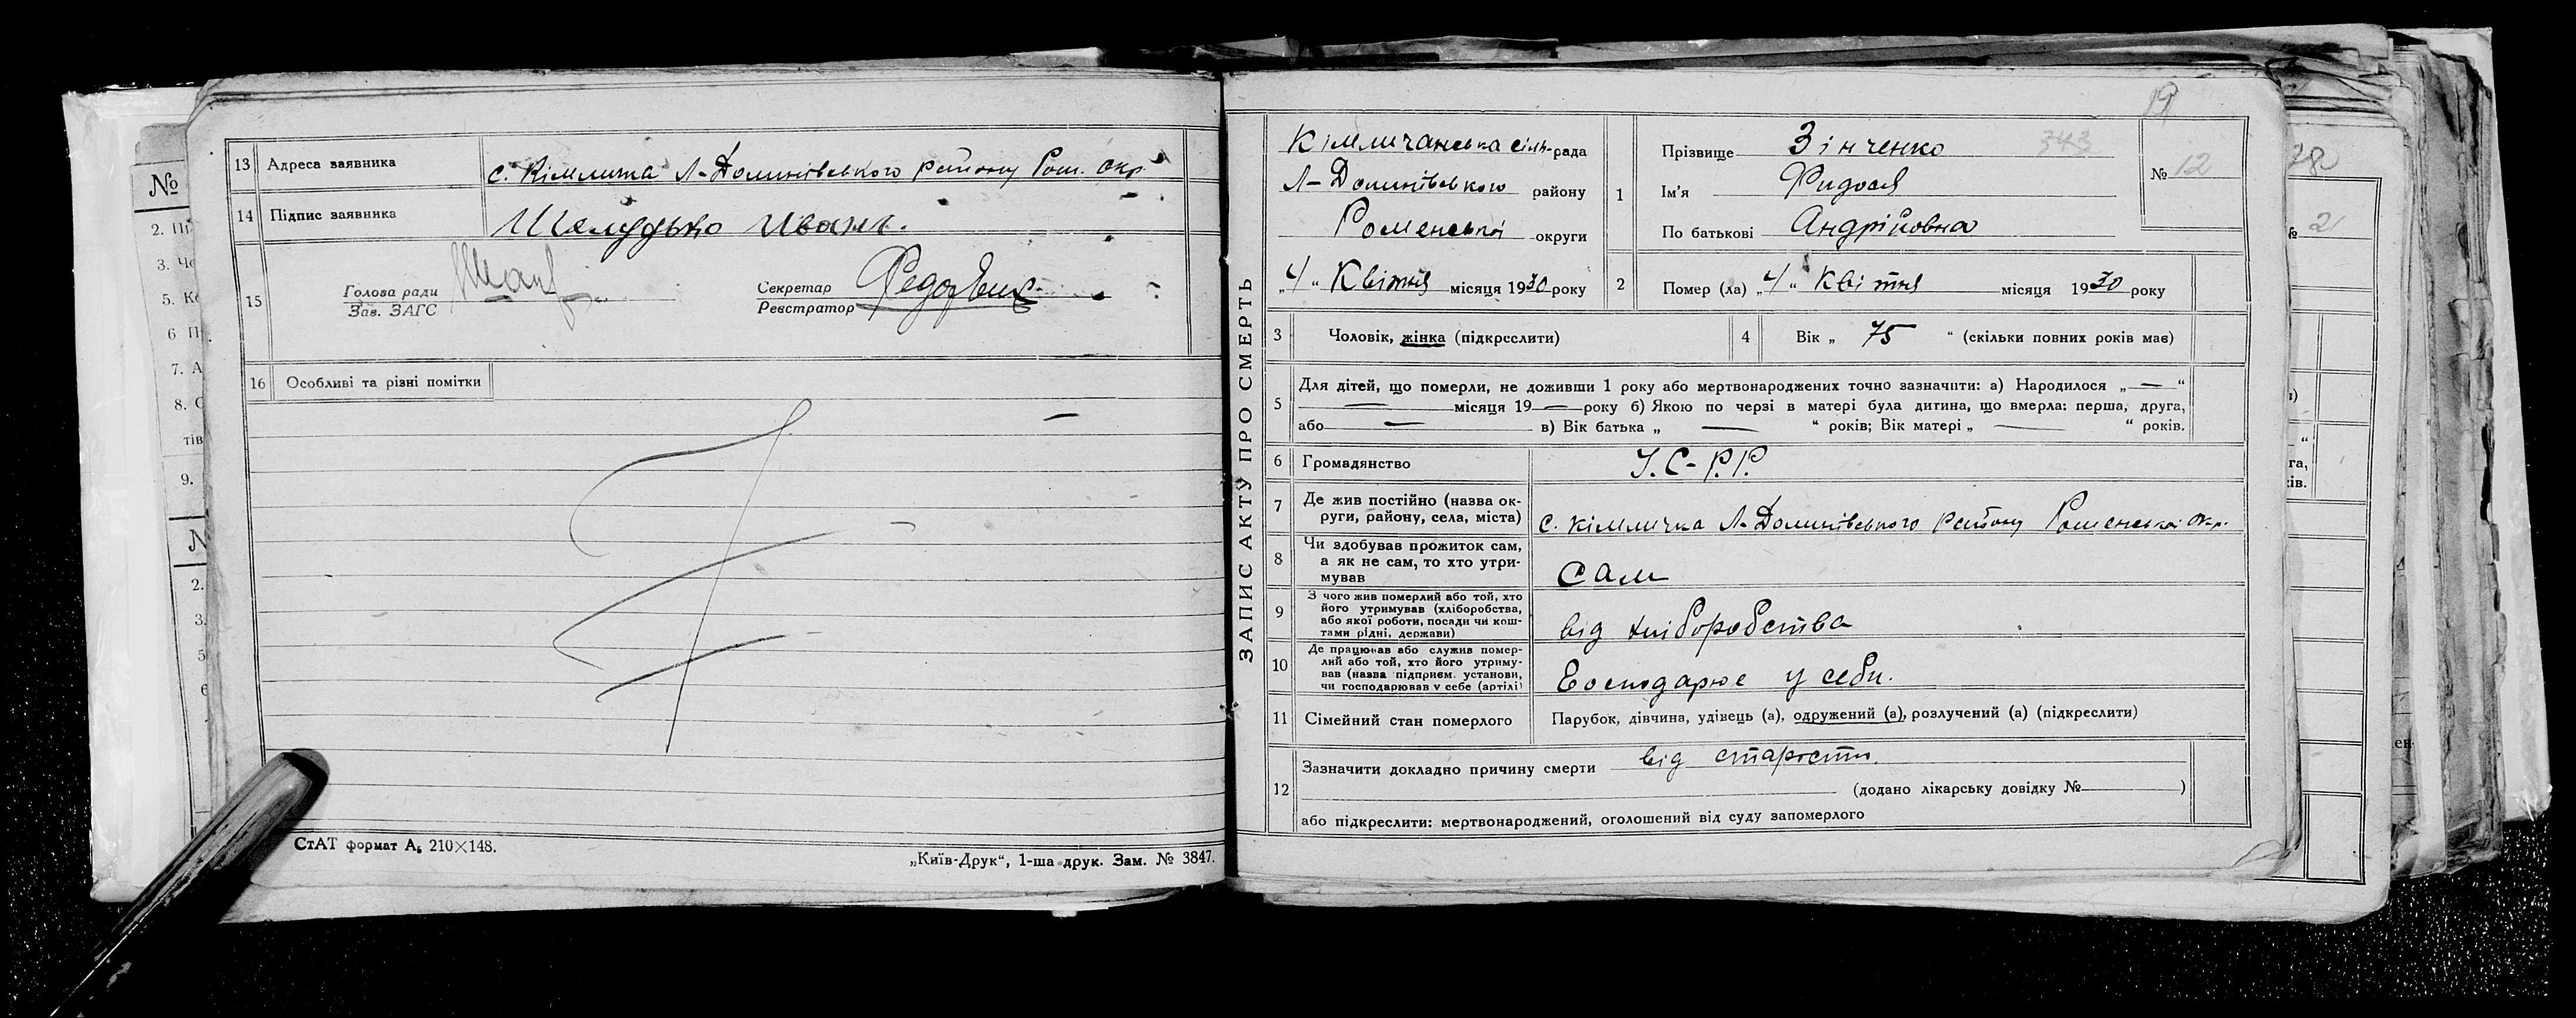 №
2. Пі
3. Че
5. Ко
6 П
7. А
8. С
тів
9.
2.
3.
5
6
13 Адреса заявника с. Кімличка Л-Долинівського району Ром. окр.
14 Підпис заявника Шелудько Иванъ.
15 Голова ради
Зав. ЗАГС
Секретар
Реєстратор
16 Особливі та різні помітки
СтАТ формат А5 210×148.
„Київ-Друк“, 1-ша друк. Зам. № 3847.
19
ЗАПИС АКТУ ПРО СМЕРТЬ
Кімличанська сіль-рада
Л-Долинівського району
Роменської округи
„4“ Квітня місяця 1930 року
1 Прізвище Зінченко 343
Ім'я Фидося
По батькові Андрійовна
№ 12
2 Помер (ла) „4“ Квітня місяця 1930 року
3 Чоловік, жінка (підкреслити)
4 Вік „ 75 “ (скільки повних років має)
5 Для дітей, що померли, не доживши 1 року або мертвонароджених точно зазначити: а) Народилося „—“
— місяця 19—року б) Якою по черзі в матері була дитина, що вмерла: перша, друга,
або — в) Вік батька „ — “ років; Вік матері „ — “ років.
6 Громадянство У.С-Р.Р.
7 Де жив постійно (назва ок-
руги, району, села, міста) с. Кімличка Л-Долинівського району Роменської окр.
8 Чи здобував прожиток сам,
а як не сам, то хто утри-
мував сам
9 З чого жив померлий або той, хто
його утримував (хліборобства,
або якої роботи, посади чи кош-
тами рідні, держави) від хліборобства
10 Де працював або служив помер-
лий або той, хто його утриму-
вав (назва підприєм. установи,
чи господарював у себе (артілі) Господарює у себи.
11 Сімейний стан померлого Парубок, дівчина, удівець (а), одружений (а), розлучений (а) (підкреслити)
12 Зазначити докладно причину смерти від старости.
(додано лікарську довідку №—)
або підкреслити: мертвонароджений, оголошений від суду запомерлого
№ 2
га,
ків.